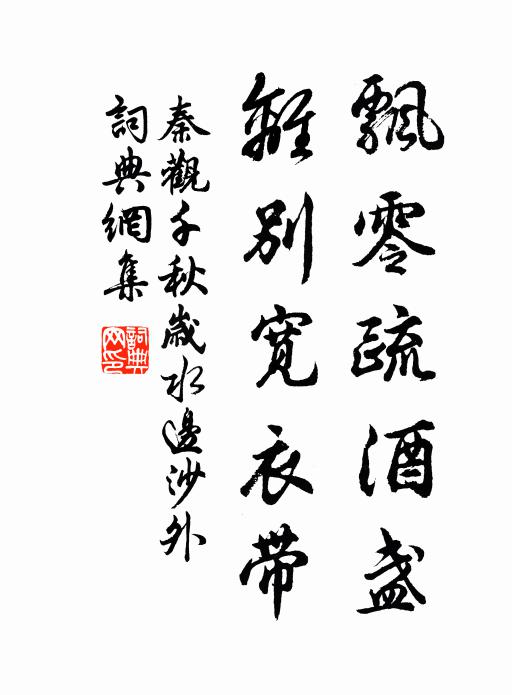 飄零疏酒盞
離別寬衣帶
秦觀千秋歲水邊沙外
詞典網集
詞典网印